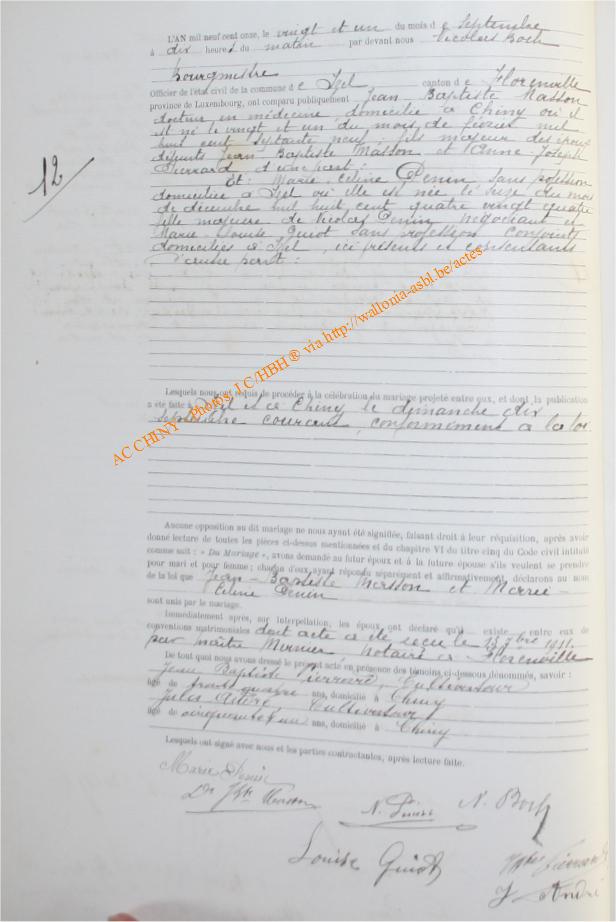 L'AN mil neuf cent onze, le vingt et un du mois de Septembre
à dix heures du matin par devant nous Nicolas Boch
Bourgmestre
Officier de l'état civil de la commune de Izel canton de Florenville
province de Luxembourg, ont comparu publiquement Jean-Baptiste Masson
docteur en médecine, domicilié à Chiny où il
est né le vingt et un du mois de février mil
huit cent septante neuf, fils majeur des époux
défunts Jean Baptiste Masson et Anne Joseph
d'une part:
12
Et: Marie Céline Denin, sans profession
domiciliée à Izel où elle est née le seize du mois
de décembre mil huit cent quatre vingt quatre
fille majeure de Nicolas Denin négociant et
Marie Louise Guiot sans profession conjoints
domiciliés à Izel, ici présents et consentants
d'autre part:
Lesquels nous ont requis de procéder à la célébration du mariage projeté entre eux, et dont la publication
a été faite à Izel et à Chiny le dimanche dix
septembre courant, conformément à la loi.
Aucune opposition au dit mariage ne nous ayant été signifiée, faisant droit à leur réquisition, après avoir
donné lecture de toutes les pièces ci-dessus mentionnées et du chapitre VI du titre cinq du Code civil intitulé
comme suit : « Du Mariage », avons demandé au futur époux et à la future épouse s'ils veulent se prendre
pour mari et pour femme ; chacun d'eux ayant répondu séparément et affirmativement, déclarons au nom
de la loi que Jean-Baptiste Masson et Marie-
Céline Denin
sont unis par le mariage.
Immédiatement après, sur interpellation, les époux ont déclaré qu'il existe entre eux de
conventions matrimoniales dont acte a été reçu le 15 7bre 1911.
par maître notaire à Florenville
De tout quoi nous avons dressé le présent acte en présence des témoins ci-dessous dénommés, savoir :
Jean Baptiste Pierrard, Cultivateur
âgé de trente quatre ans, domicilié à Chiny
Jules Cultivateur
âgé de cinquante et un ans, domicilié à Chiny
Lesquels ont signé avec nous et les parties contractantes, après lecture faite.
Marie Denin
Dr Masson
N. Denin N. Boch
Louise Guiot
J. André
AC CHINY - Photos J.C/HBH ® via http://wallonia-asbl.be/actes